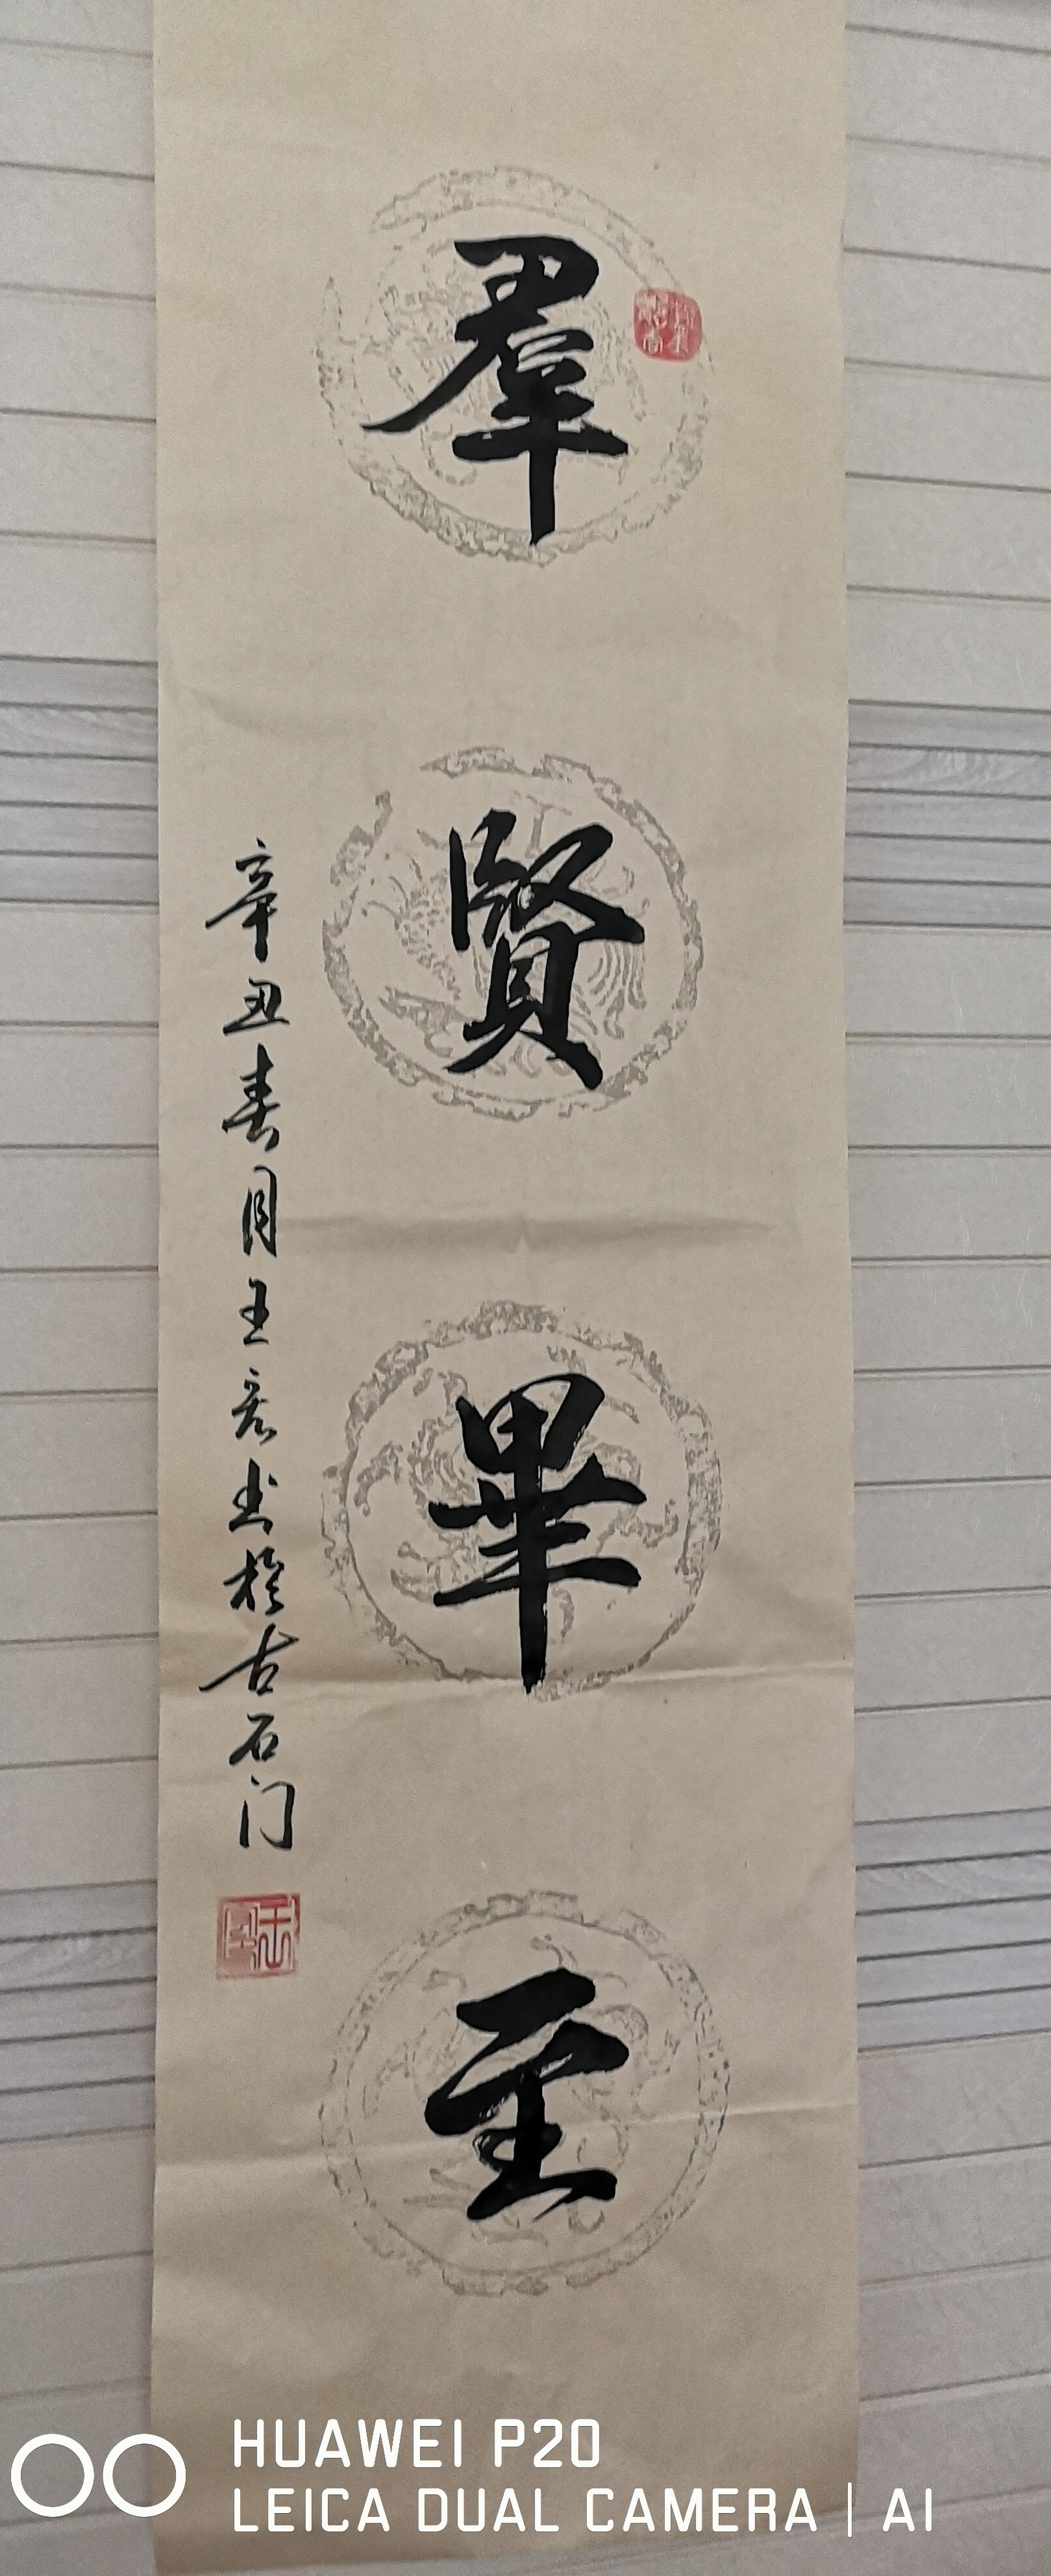 羣賢畢至
辛丑春月王宏书於古石门
HUAWEI P20
LEICA DUAL CAMERA | AI